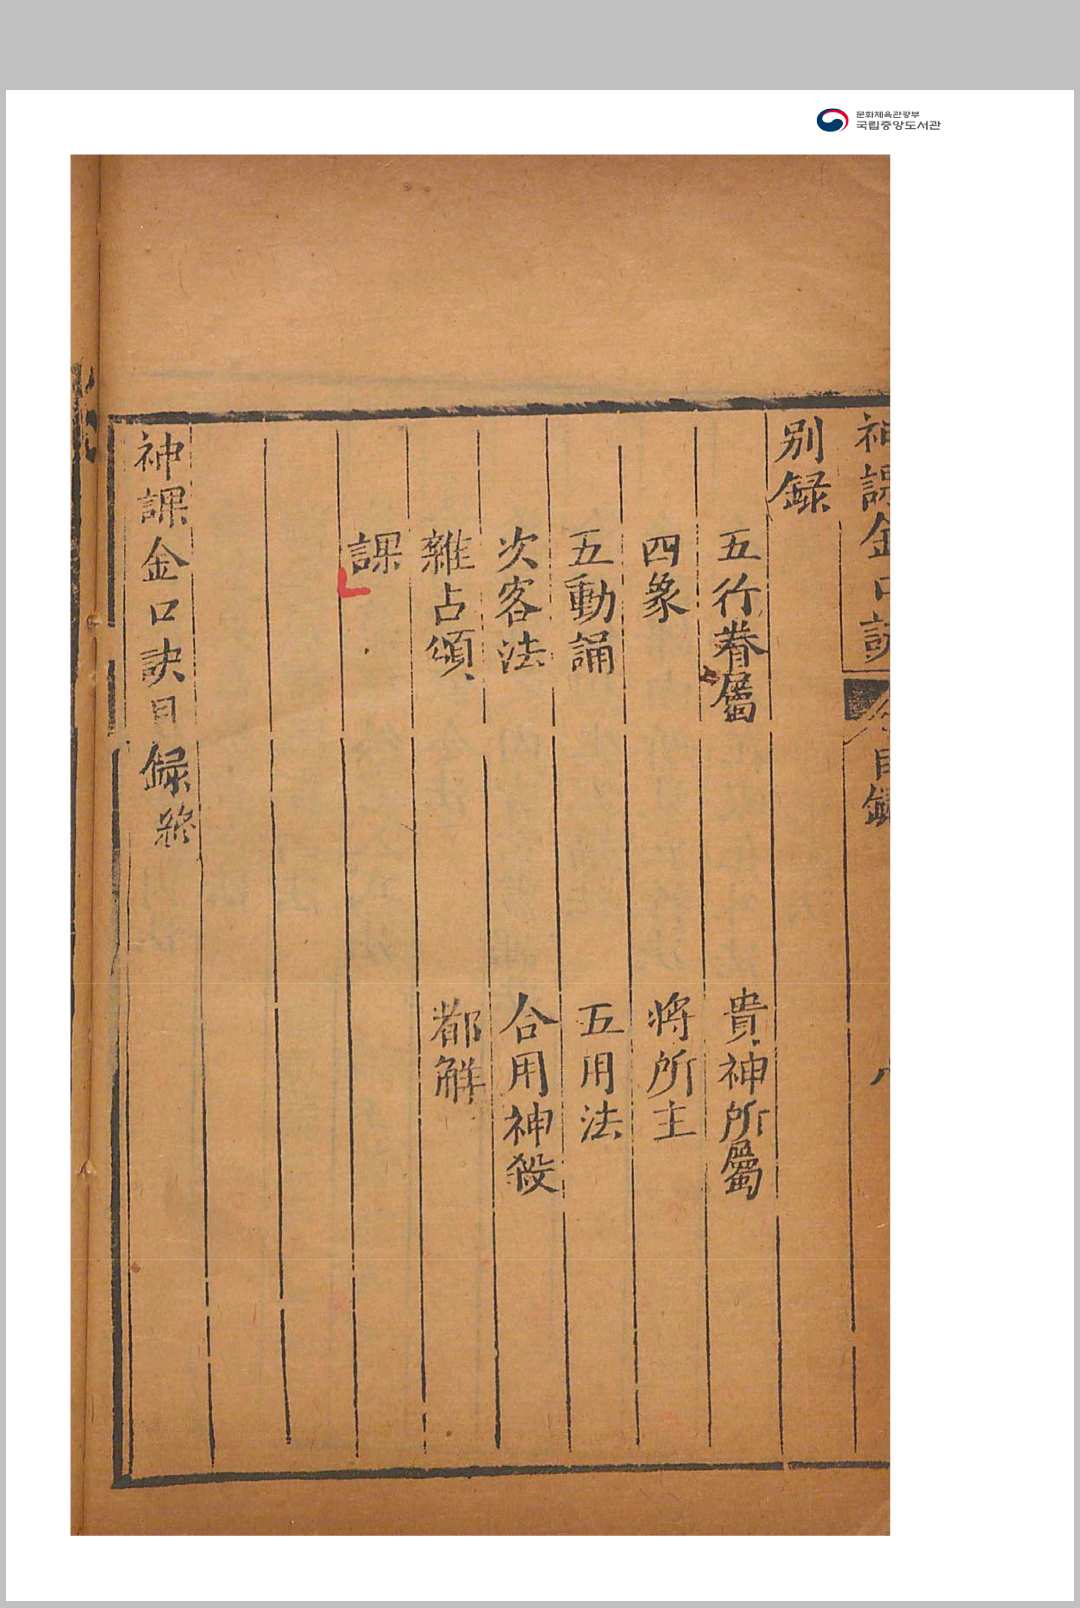 문화체육관광부
국립중앙도서관
神課金口訣 目錄
別録
五行眷屬 貴神所屬
四象 將所主
五動誦 五用法
次客法 合用神殺
雜占頌 都解
課
神課金口訣目録終